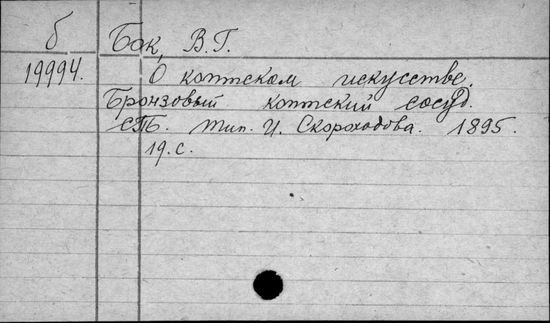 б
19994.
Бок, В.Г.
О коптском искусстве.
Бронзовый коптский сосуд.
СПБ. тип. И. Скороходова. 1895.
19.с.